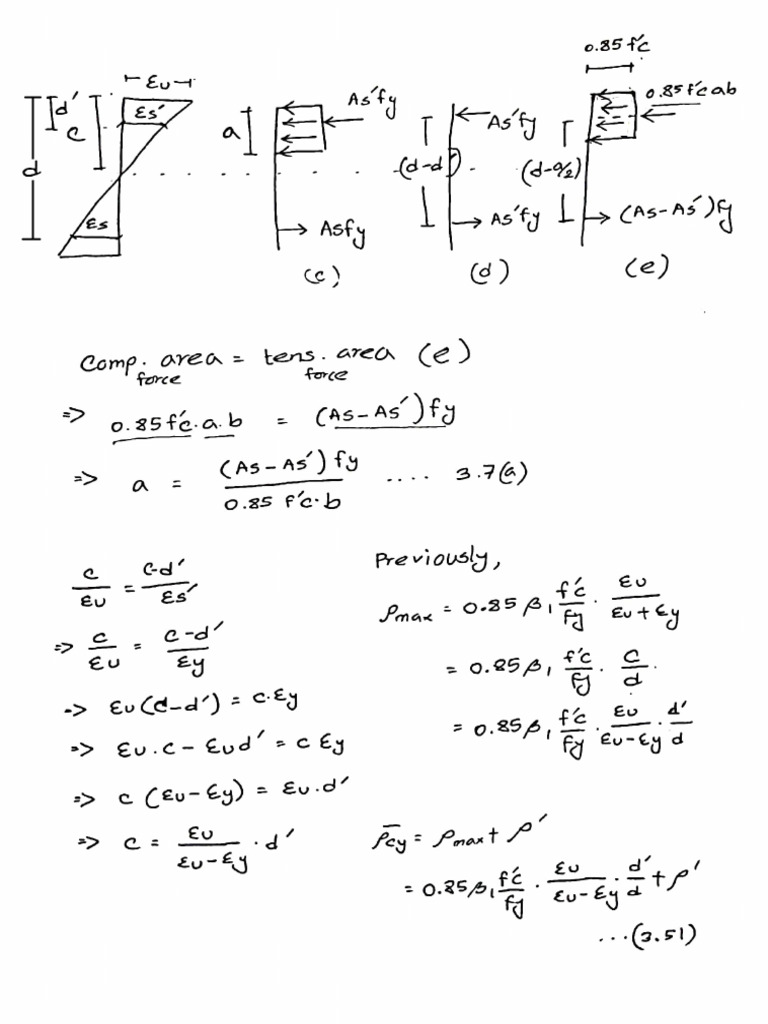 0.85 f'c
εu
d'
εs'
c
d
εs
a
As'fy
Asfy
(c)
As'fy
(d-d')
As'fy
(d)
0.85 f'c ab
(d-a/2)
(As-As')fy
(e)
Comp. area = tens. area (e)
force force
=> 0.85 f'c. a. b = (As-As')fy
=> a = (As-As') fy / 0.85 f'c.b .... 3.7(a)
c/εu = c-d'/εs'
=> c/εu = c-d'/εy
=> εu(d-d') = c.εy
=> εu.c - εud' = c εy
=> c (εu-εy) = εu.d'
=> c = εu/εu-εy . d'
Previously,
ρmax = 0.85 β1 f'c/fy . εu/εu+εy
= 0.85β1 f'c/fy . c/d.
= 0.85β1 f'c/fy . εu/εu-εy . d'/d
ρ̅cy = ρmax + ρ'
= 0.85β1 f'c/fy . εu/εu-εy . d'/d + ρ'
...(3.51)